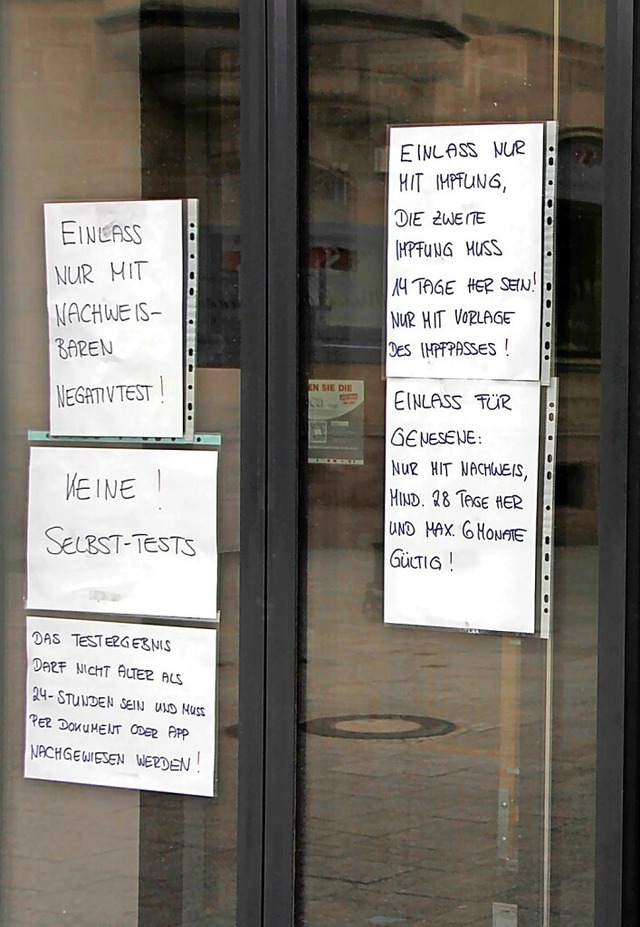 EINLASS
NUR MIT
NACHWEIS-
BAREN
NEGATIVTEST!
KEINE!
SELBST-TESTS
DAS TESTERGEBNIS
DARF NICHT ÄLTER ALS
24-STUNDEN SEIN UND MUSS
PER DOKUMENT ODER APP
NACHGEWIESEN WERDEN!
EINLASS NUR
MIT IMPFUNG,
DIE ZWEITE
IMPFUNG MUSS
14 TAGE HER SEIN!
NUR MIT VORLAGE
DES IMPFPASSES!
EINLASS FÜR
GENESENE:
NUR MIT NACHWEIS,
MIND. 28 TAGE HER
UND MAX. 6 MONATE
GÜLTIG!
EN SIE DIE